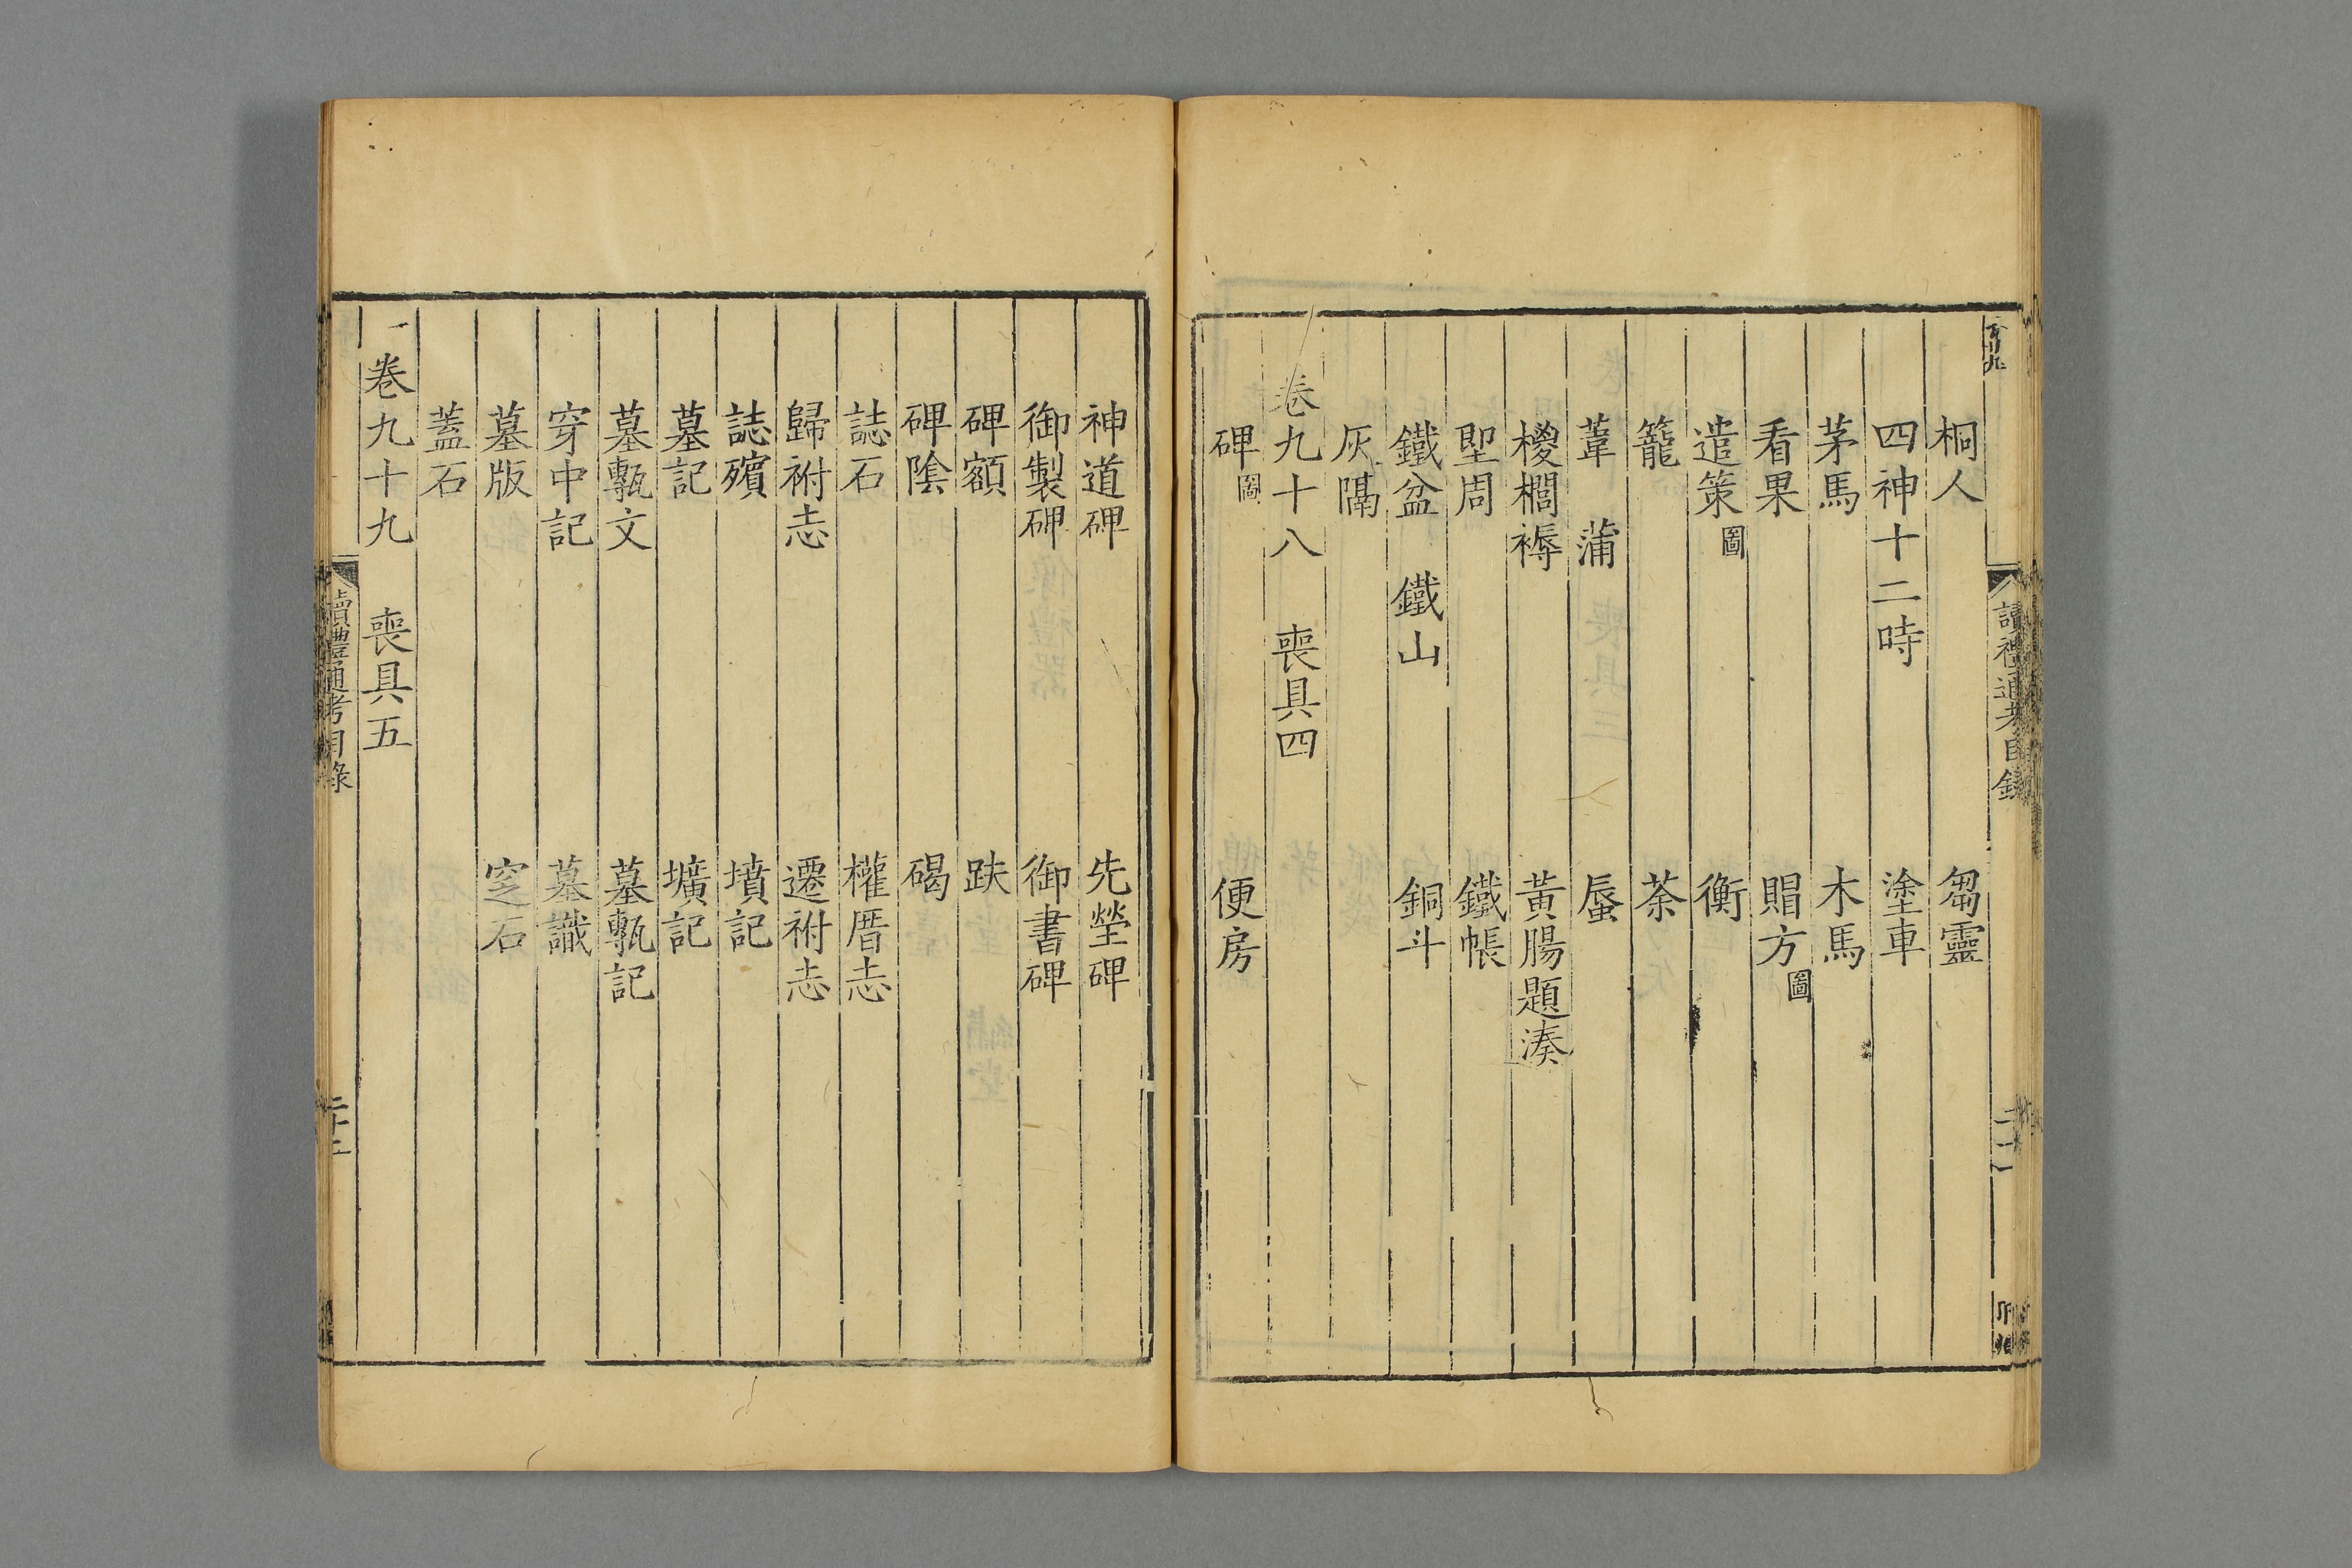 讀禮通考目錄
桐人 芻靈
四神十二時 塗車
茅馬 木馬
看果 賵方圖
遣策圖 衡
籠 荼
葦 蒲 蜃
椶櫚褥 黃腸題湊
堲周 鐵帳
鐵盆 鐵山 銅斗
灰隔
卷九十八 喪具四
碑圖 便房
神道碑 先塋碑
御製碑 御書碑
碑額 趺
碑陰 碣
誌石 權厝志
歸祔志 遷祔志
誌殯 墳記
墓記 壙記
墓甎文 墓甎記
穿中記 墓識
墓版 窆石
蓋石
卷九十九 喪具五
讀禮通考目錄